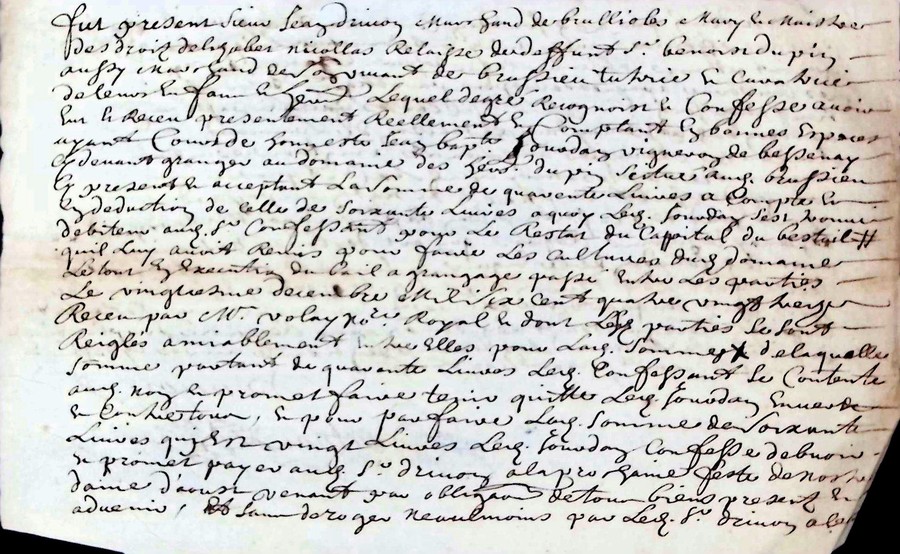 fut present Sieur Jean drivon Marchand de brullioles Mary et Maistre
des droiz delizabet Nicollas Relaisse de deffunt Sr. benoist du pin
aussy Marchand de son vivant de brussieu tutrice et Curatrice
de leurs Enfans et heritiers Lequel de gré Recognoist et Confesse avoir
Eu et Receu presentement Reellement et Comptant En bonnes Especes
ayant Cours de honneste Jean bapte Jourdan vigneron de bessenay
Cy devant granger au domaine des hers. du pin scitué aud. brussieu
Cy present et acceptant La somme de quarente Livres a Compte et
En deduction de celle de soixante Livres a quoy Led. Jourdan sest trouvé
debiteur aud. Sr. Confessant pour Le Restat du Cappital du bestail
quil Luy avoit Remis pour faire Les Cultures dud. domaine
Le tout En Execution du bail a grangeage passé Entre Les parties
Le vingtiesme decembre Mil six cent quatre vingt treize
Receu par Me. volay nre. Royal et dont Lesd. parties se sont
Reiglés amiablement Entre Elles pour Lad. somme de laquelle
somme partant de quarante Livres Led. Confessant se Contente
aud. nom et promet faire tenir quitte Led. Jourdan Envers et
Contre tous, et pour parfaire Lad. somme de soixante
Livres quj Est vingt Livres Led. Jourdan Confesse debvoir
et promet payer aud. Sr. drivon a la prochaine feste de nostre
dame d'aoust venant par obligaon de tous biens present et
advenir, Et sans deroger neaulmoins par Led. Sr. drivon a